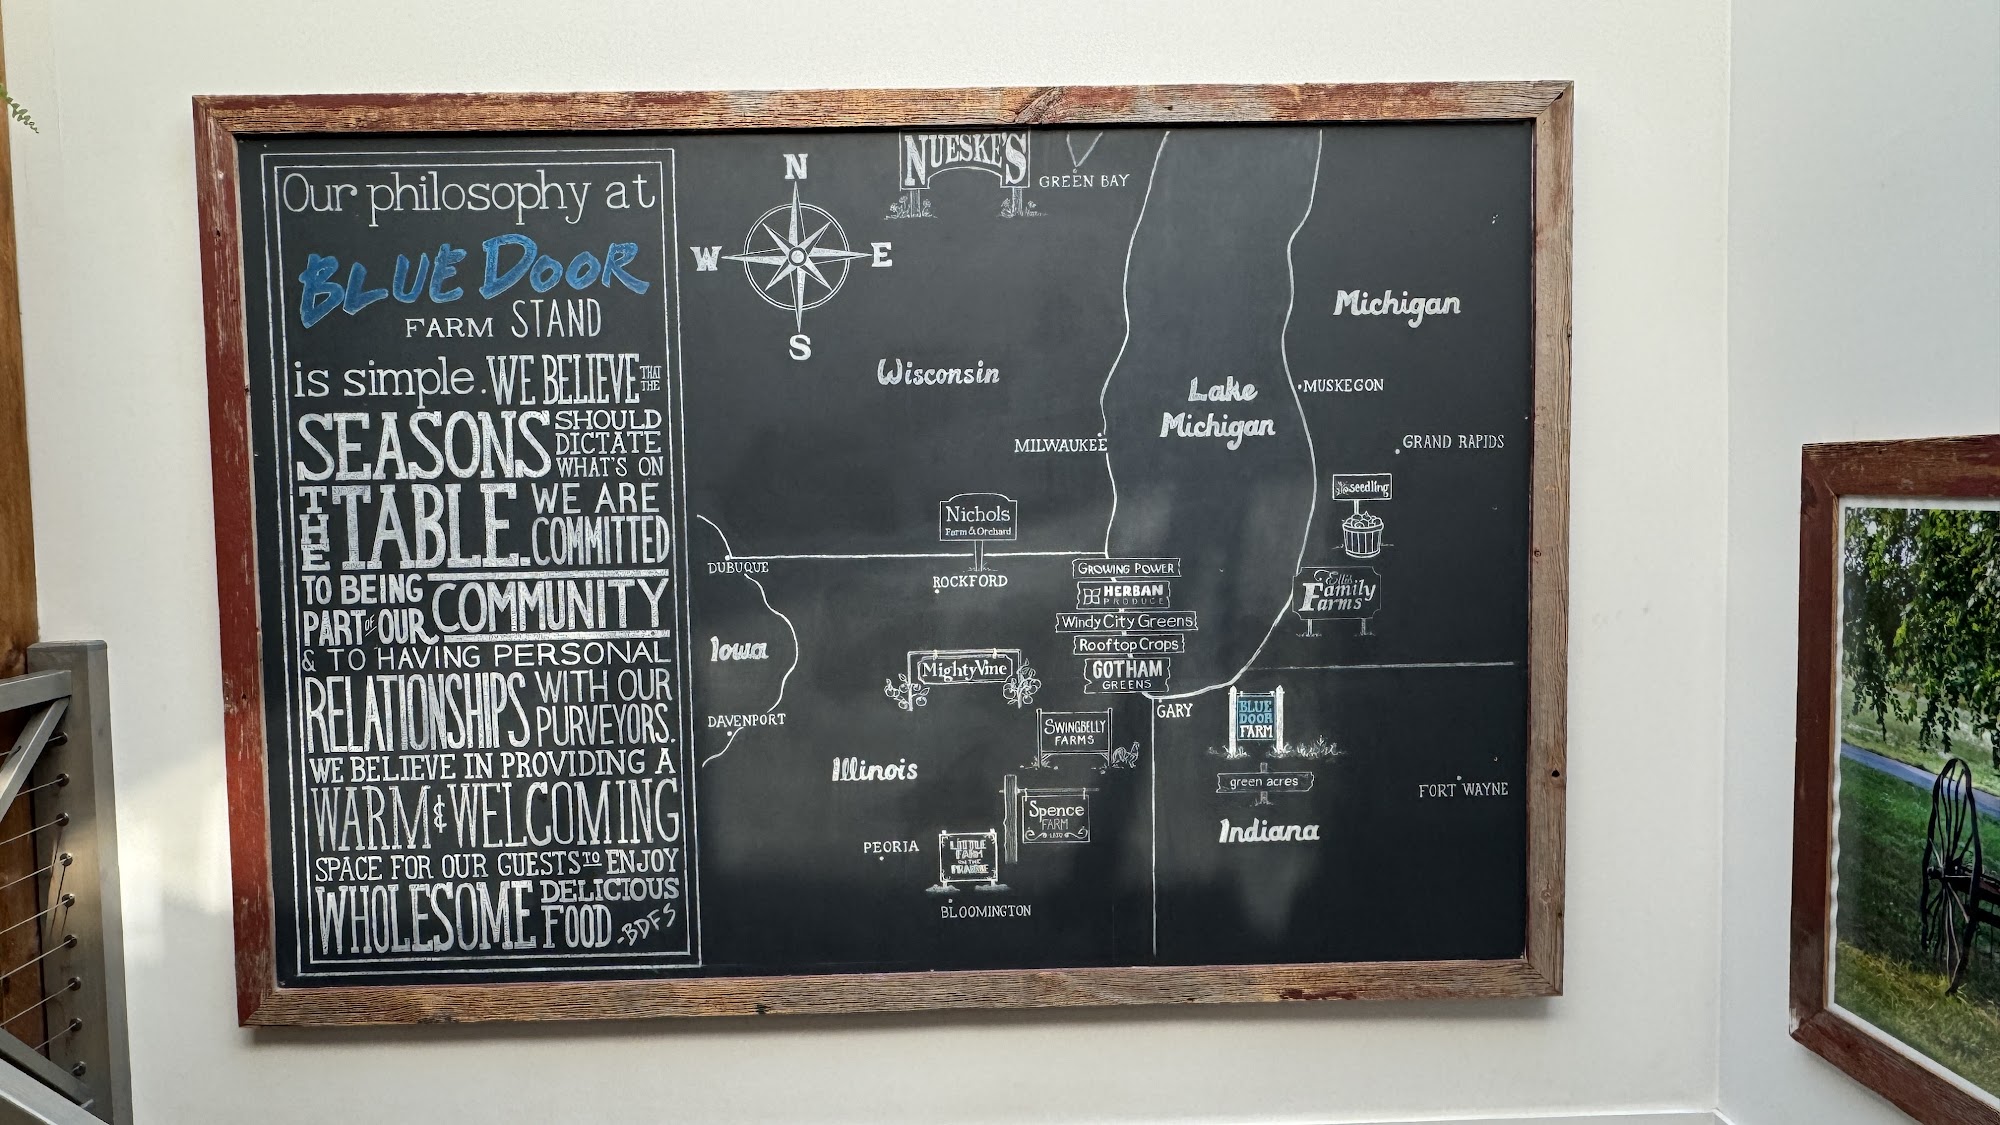 Our philosophy at
BLUE DOOR
FARM STAND
is simple. WE BELIEVE THAT THE
SEASONS SHOULD DICTATE WHAT'S ON
THE TABLE. WE ARE COMMITTED
TO BEING PART OF OUR COMMUNITY
& TO HAVING PERSONAL
RELATIONSHIPS WITH OUR PURVEYORS.
WE BELIEVE IN PROVIDING A
WARM & WELCOMING
SPACE FOR OUR GUESTS TO ENJOY
WHOLESOME DELICIOUS FOOD -BDFS
N
W
E
S
NUESKE'S
GREEN BAY
Wisconsin
Michigan
Lake
Michigan
MUSKEGON
MILWAUKEE
GRAND RAPIDS
seedling
Nichols
Farm & Orchard
DUBUQUE
ROCKFORD
GROWING POWER
HERBAN
PRODUCE
Windy City Greens
Rooftop Crops
GOTHAM
GREENS
Ellis
Family
Farms
Iowa
MightyVine
DAVENPORT
GARY
SWINGBELLY
FARMS
BLUE
DOOR
FARM
green acres
Illinois
FORT WAYNE
Indiana
Spence
FARM
PEORIA
LITTLE
FARM
ON THE
PRAIRIE
BLOOMINGTON